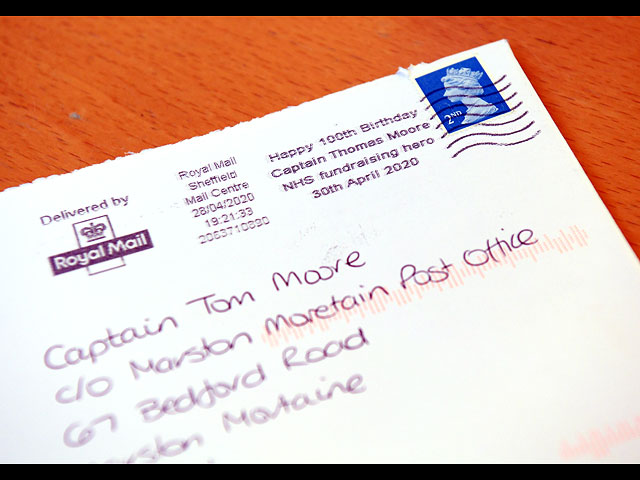 Delivered by
Royal Mail
Royal Mail
Sheffield
Mail Centre
28/04/2020
19:21:33
2083710890
Happy 100th Birthday
Captain Thomas Moore
NHS fundraising hero
30th April 2020
2ND
Captain Tom Moore
c/o Marston Moretain Post Office
67 Bedford Road
Marston Mortaine